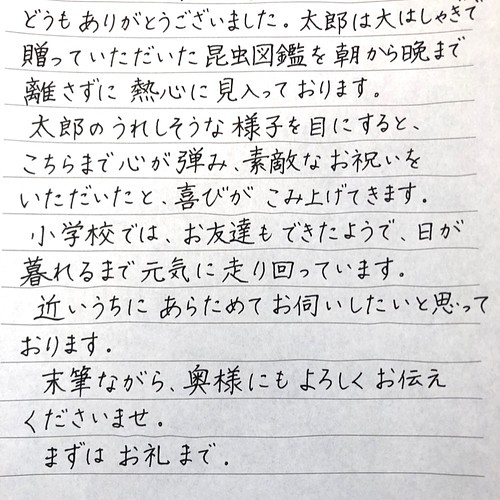 どうもありがとうございました。太郎は大はしゃぎで
贈っていただいた昆虫図鑑を朝から晩まで
離さずに熱心に見入っております。
太郎のうれしそうな様子を目にすると、
こちらまで心が弾み、素敵なお祝いを
いただいたと、喜びがこみ上げてきます。
小学校では、お友達もできたようで、日が
暮れるまで元気に走り回っています。
近いうちにあらためてお伺いしたいと思って
おります。
末筆ながら、奥様にもよろしくお伝え
くださいませ。
まずはお礼まで。